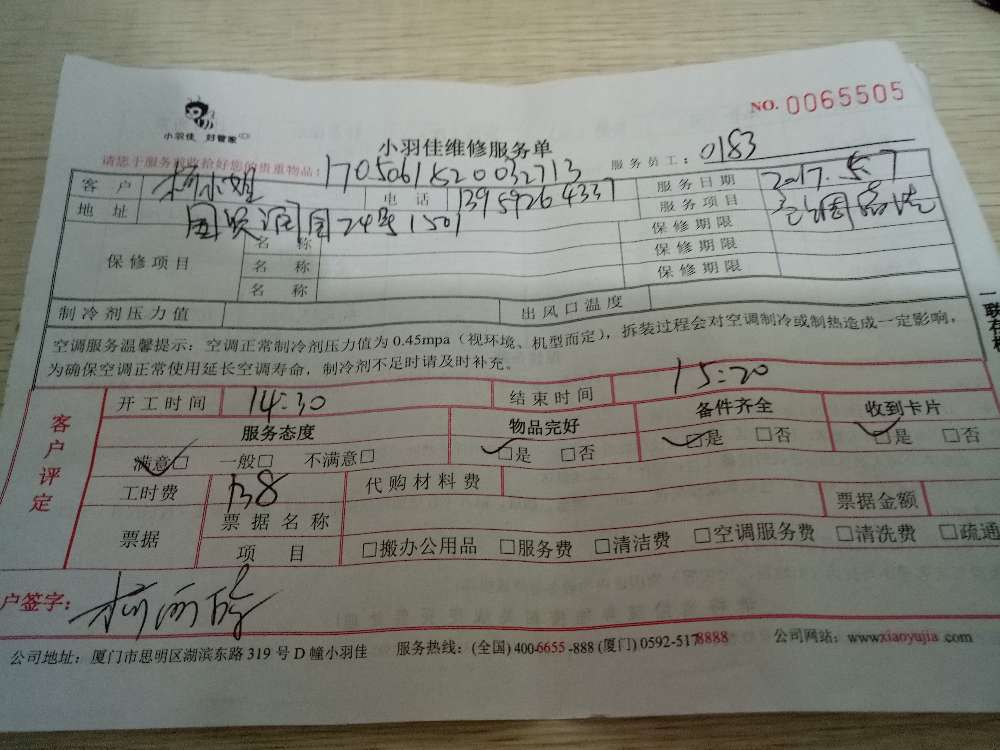 NO. 0065505
小羽佳 好管家
小羽佳维修服务单
请您于服务前收拾好您的贵重物品:
服务员工: 0183
客户 杨小姐 1705061520032713 电话 13959264337 服务日期 2017.5.7
地址 国贸润园24号1501 服务项目 空调清洗
保修项目 名称 保修期限
名称 保修期限
名称 保修期限
制冷剂压力值 出风口温度
空调服务温馨提示:空调正常制冷剂压力值为 0.45mpa(视环境、机型而定),拆装过程会对空调制冷或制热造成一定影响,
为确保空调正常使用延长空调寿命,制冷剂不足时请及时补充。
客户评定
开工时间 14:30 结束时间 15:20
服务态度 物品完好 备件齐全 收到卡片
满意□ 一般□ 不满意□ □是 □否 □是 □否 □是 □否
工时费 138 代购材料费
票据 票据名称 票据金额
项目 □搬办公用品 □服务费 □清洁费 □空调服务费 □清洗费 □疏通
户签字:
公司地址:厦门市思明区湖滨东路 319 号 D 幢小羽佳 服务热线:(全国) 400-6655-888 (厦门) 0592-5178888 公司网站:www.xiaoyujia.com